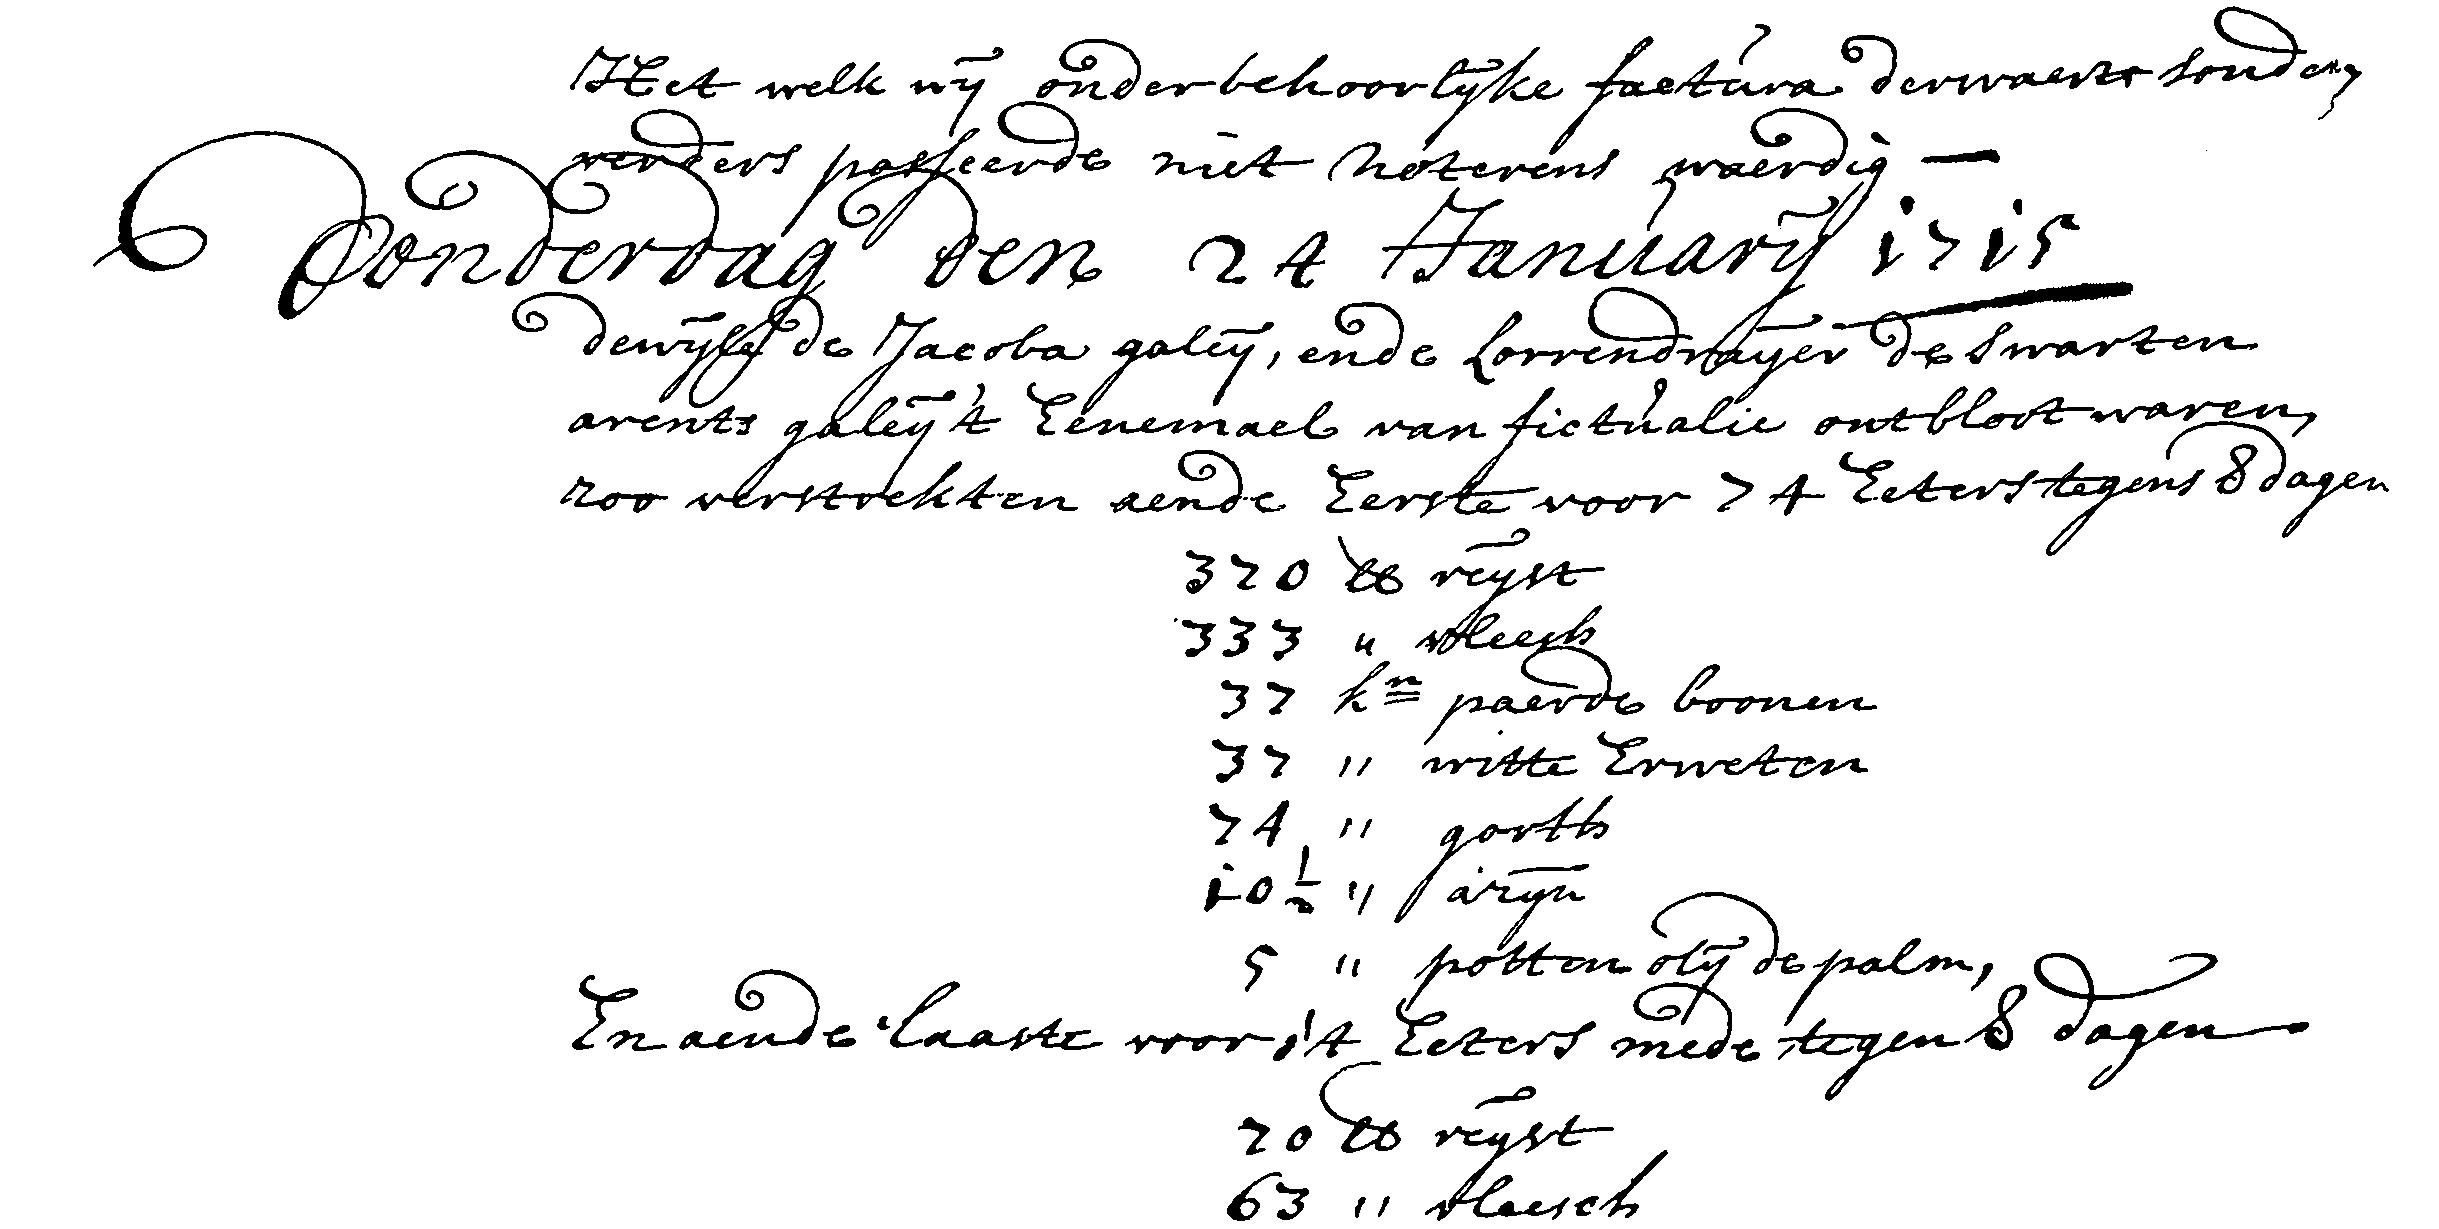 Het welk wij onder behoorlijke factura derwaerts sonden,
verders passeerde niet noterens waerdig —
Donderdag den 24 Januarij 1715
dewijle de Jacoba galeij, ende Lorrendraijer de swarten
arents galeij 't Eenemael van fictualie ontbloot waren,
zoo verstrekten aende Eerste voor 74 Eeters tegens 8 dagen
370 lb reijst
333 " vleesch
37 kn paerde boonen
37 " witte Erweten
74 " gorth
10½ " azijn
5 " potten olij de palm,
En aende laaste voor 14 Eeters mede tegen 8 dagen
70 lb reijst
63 " vleesch